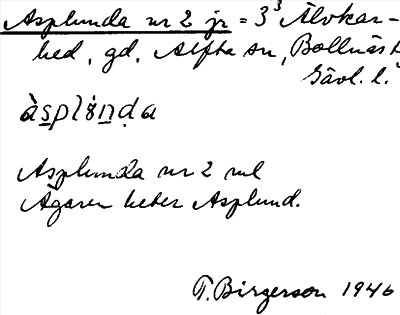 Asplunda nr 2 jr = 3³ Älvkar-
hed, gd, Alfta sn, Bollnäs t
Gävl. l.
àsplønda
Asplunda nr 2 ml
Ägaren heter Asplund.
T. Birgerson 1946